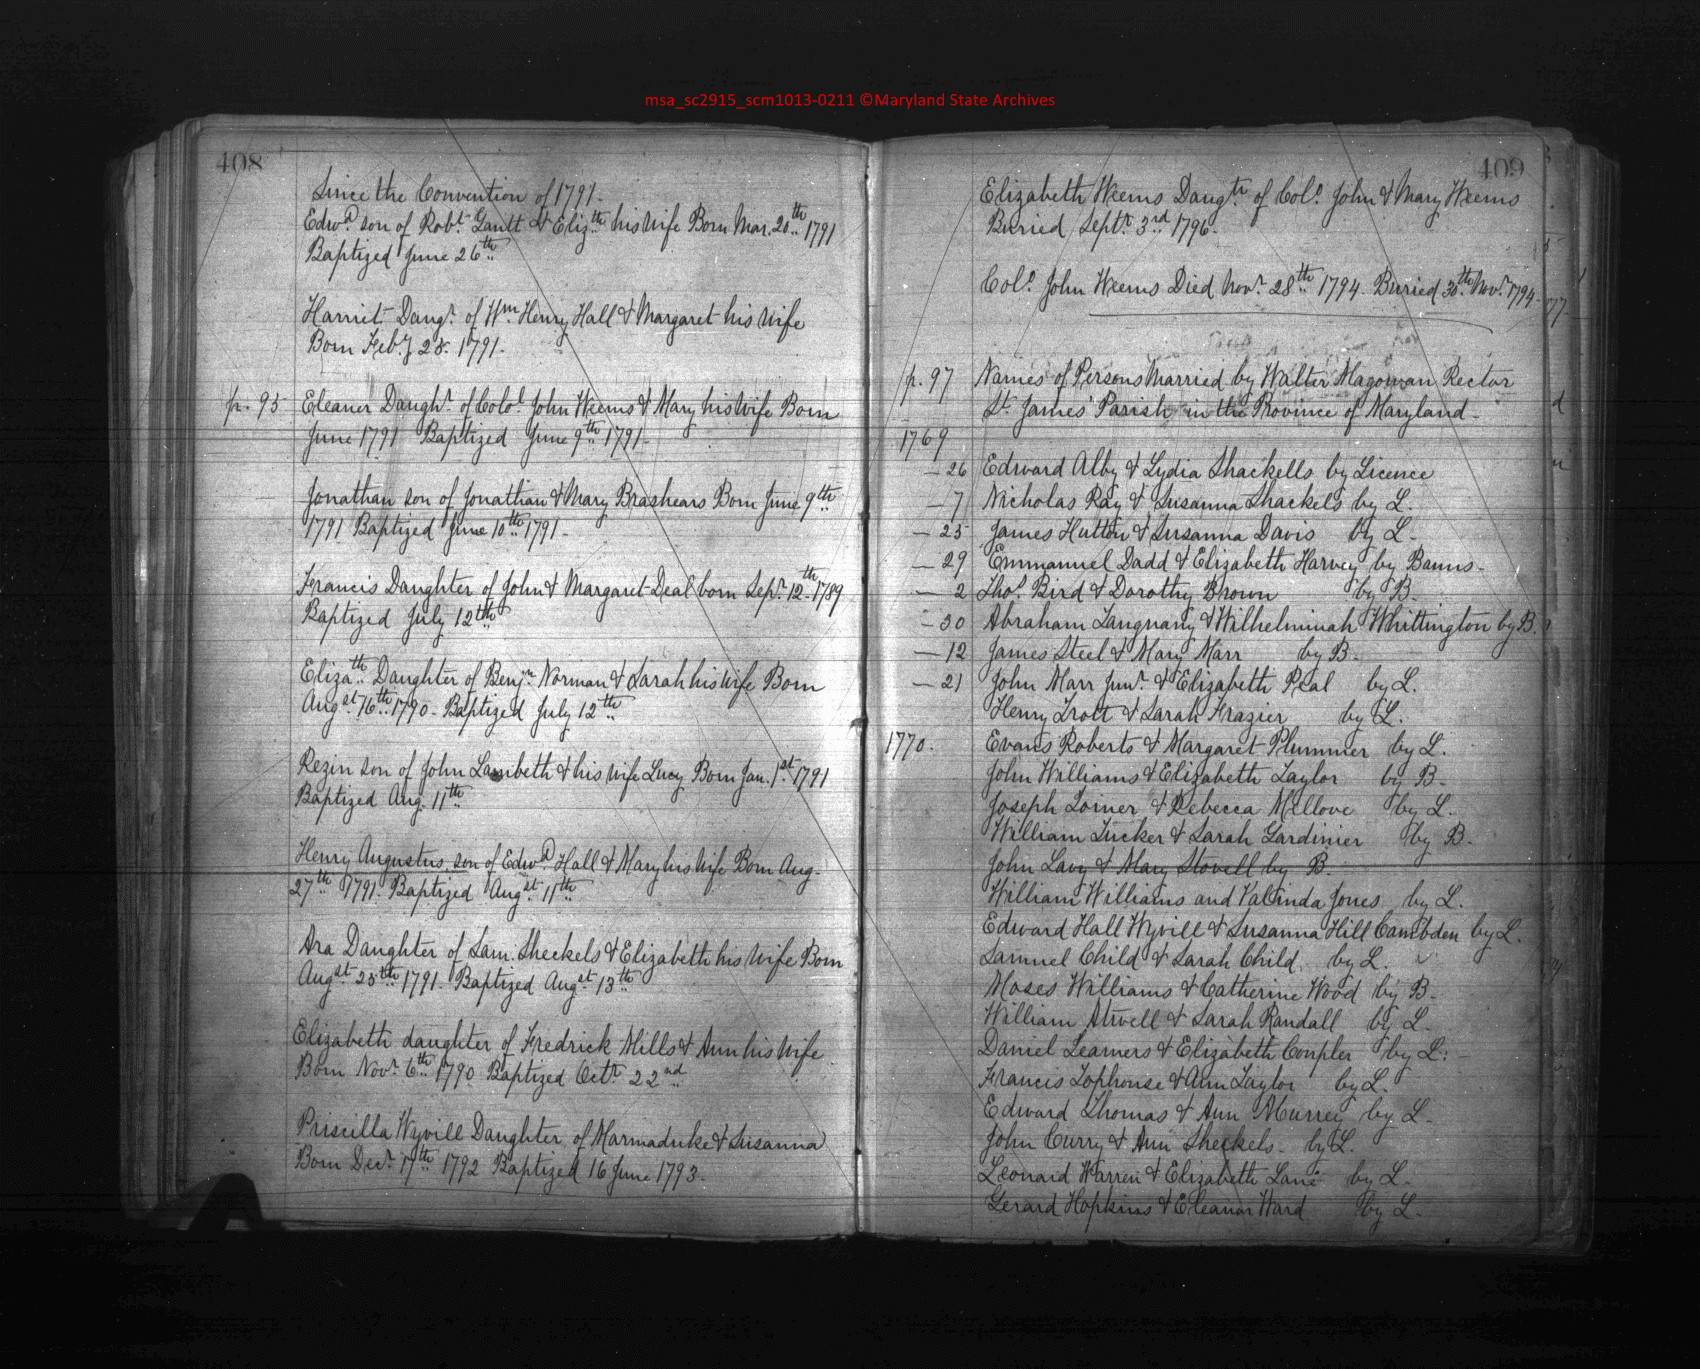 msa_sc2915_scm1013-0211 ©Maryland State Archives
408
Since the Convention of 1791.
Edwd. son of Robt. Gantt & Elizth. his wife Born Mar. 20th. 1791
Baptized June 26th.
Harriet Daugr. of Wm. Henry Hall & Margaret his wife
Born Feby 28. 1791.
p. 95 Eleaner Daughr. of Colol. John Weems & Mary his wife Born
June 1791 Baptized June 9th. 1791-
Jonathan son of Jonathan & Mary Brashears Born June 9th.
1791 Baptized June 10th. 1791.
Francis Daughter of John & Margaret Deal born Sepr. 12th. 1789
Baptized July 12th.
Elizath. Daughter of Benjn. Norman & Sarah his wife Born
Augst. 16th. 1790 - Baptized July 12th.
Rezin son of John Lambeth & his wife Lucy Born Jan. 1st. 1791
Baptized Aug. 11th.
Henry Augustus son of Edwd. Hall & Mary his wife Born Aug-
27th. 1791. Baptized Augst. 11th.
Ara Daughter of Sam. Sheckels & Elizabeth his wife Born
Augst. 25th. 1791. Baptized Augst. 13th.
Elizabeth daughter of Fredrick Mills & Ann his wife
Born Novr. 6th. 1790 Baptized Octr. 22nd.
Priscilla Wyvill Daughter of Marmaduke & Susanna
Born Decr. 17th. 1792 Baptized 16 June 1793.
409
Elizabeth Weems Daugtr. of Colo. John & Mary Weems
Buried Septr. 3rd. 1796.
Colo. John Weems Died Novr. 28th. 1794. Buried 30th. Novr. 1794.
p. 97 Names of Persons Married by Walter Magowan Rector
St. James' Parish in the Province of Maryland-
1769
- 26 Edward Alby & Lydia Shackells by Licence
- 7 Nicholas Ray & Susanna Shackels by L.
- 25 James Hutton & Susanna Davis by L.
- 29 Emmanuel Dadd & Elizabeth Harvey by Banns-
- 2 Thos. Bird & Dorothy Brown by B.
- 30 Abraham Langnany & Wilhelminah Whittington by B.
- 12 James Steel & Mary Marr by B-
- 21 John Marr Junr. & Elizabeth Peal by L.
Henry Trott & Sarah Frazier by L.
1770. Evans Roberts & Margaret Plummer by L.
John Williams & Elizabeth Taylor by B-
Joseph Loiner & Rebecca Millove by L.
William Tucker & Sarah Gardinier by B.
John Lavy & Mary Stovell by B.
William Williams and Valinda Jones by L.
Edward Hall Wyvill & Susanna Hill Cambden by L.
Samuel Child & Sarah Child by L.
Moses Williams & Catherine Wood by B.
William Atwell & Sarah Randall by L.
Daniel Leamers & Elizabeth Coupler by L:
Francis Lophouse & Ann Taylor by L.
Edward Thomas & Ann Murrey by L.
John Curry & Ann Sheckels- by L.
Leonard Warren & Elizabeth Lane by L.
Gerard Hopkins & Eleanor Ward by L.